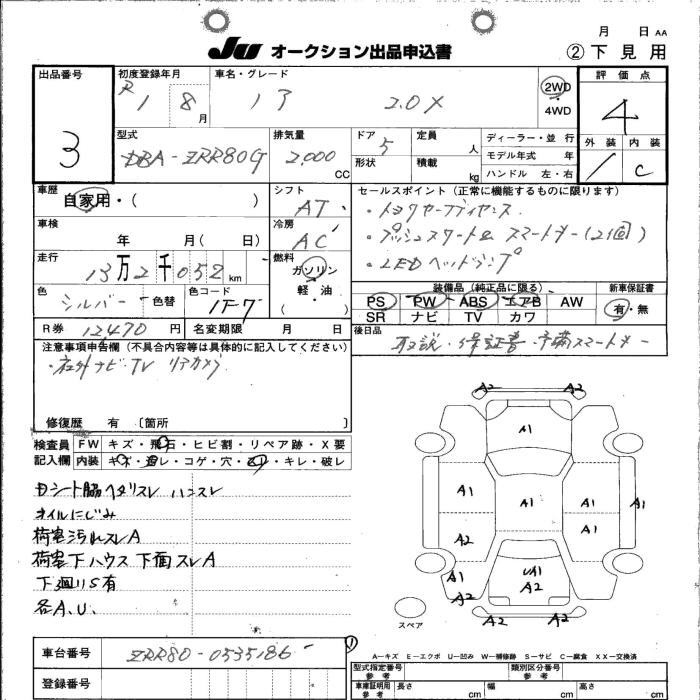 月 日 AA
JU オークション出品申込書
② 下見用
出品番号
3
初度登録年月
R1 8月
車名・グレード
2.0X
2WD
・
4WD
評価点
4
外装 内装
1 C
型式
DBA-ZRR80G
排気量
2,000 CC
ドア 5
形状
定員 人
積載 kg
ディーラー・並行
モデル年式 年
ハンドル 左・右
車歴
自家用・( )
シフト
AT
セールスポイント (正常に機能するものに限ります)
・トヨタセーフティセンス
・プッシュスタート& スマートキー(2個)
・LEDヘッドランプ
車検
年 月( 日)
冷房
AC
走行
13万2千052km
燃料
ガソリン
軽・油
( )
色
シルバー
色替
色コード
1F7
装備品 (純正品に限る)
PS PW ABS エアB AW
SR ナビ TV カワ
新車保証書
有・無
R券 12470円
名変期限 月 日
後日品
取説・保証書・予備スマートキー
注意事項申告欄 (不具合内容等は具体的に記入してください)
・社外ナビ・TV リアカメラ
修復歴 有 〔箇所 〕
検査員
記入欄
FW キズ・飛石・ヒビ割・リペア跡・X要
内装 キズ・汚レ・コゲ・穴・凹ミ・キレ・破レ
Dシート脇ヘタリスレ ハンスレ
オイルにじみ
荷室汚れスレA
荷室下ハウス下面スレA
下廻りS有
各A.U.
A2 A2
A1
A1 A1 A1 A1
A2 A1
A1 UA1
A2 A2
A2 A2
スペア
車台番号
ZRR80-0535186
登録番号
①
A-キズ E-エクボ U-凹み W-補修跡 S-サビ C-腐食 XX-交換済
型式指定番号
参考
類別区分番号
車庫証明用
参考
長さ cm
幅 cm
高さ cm